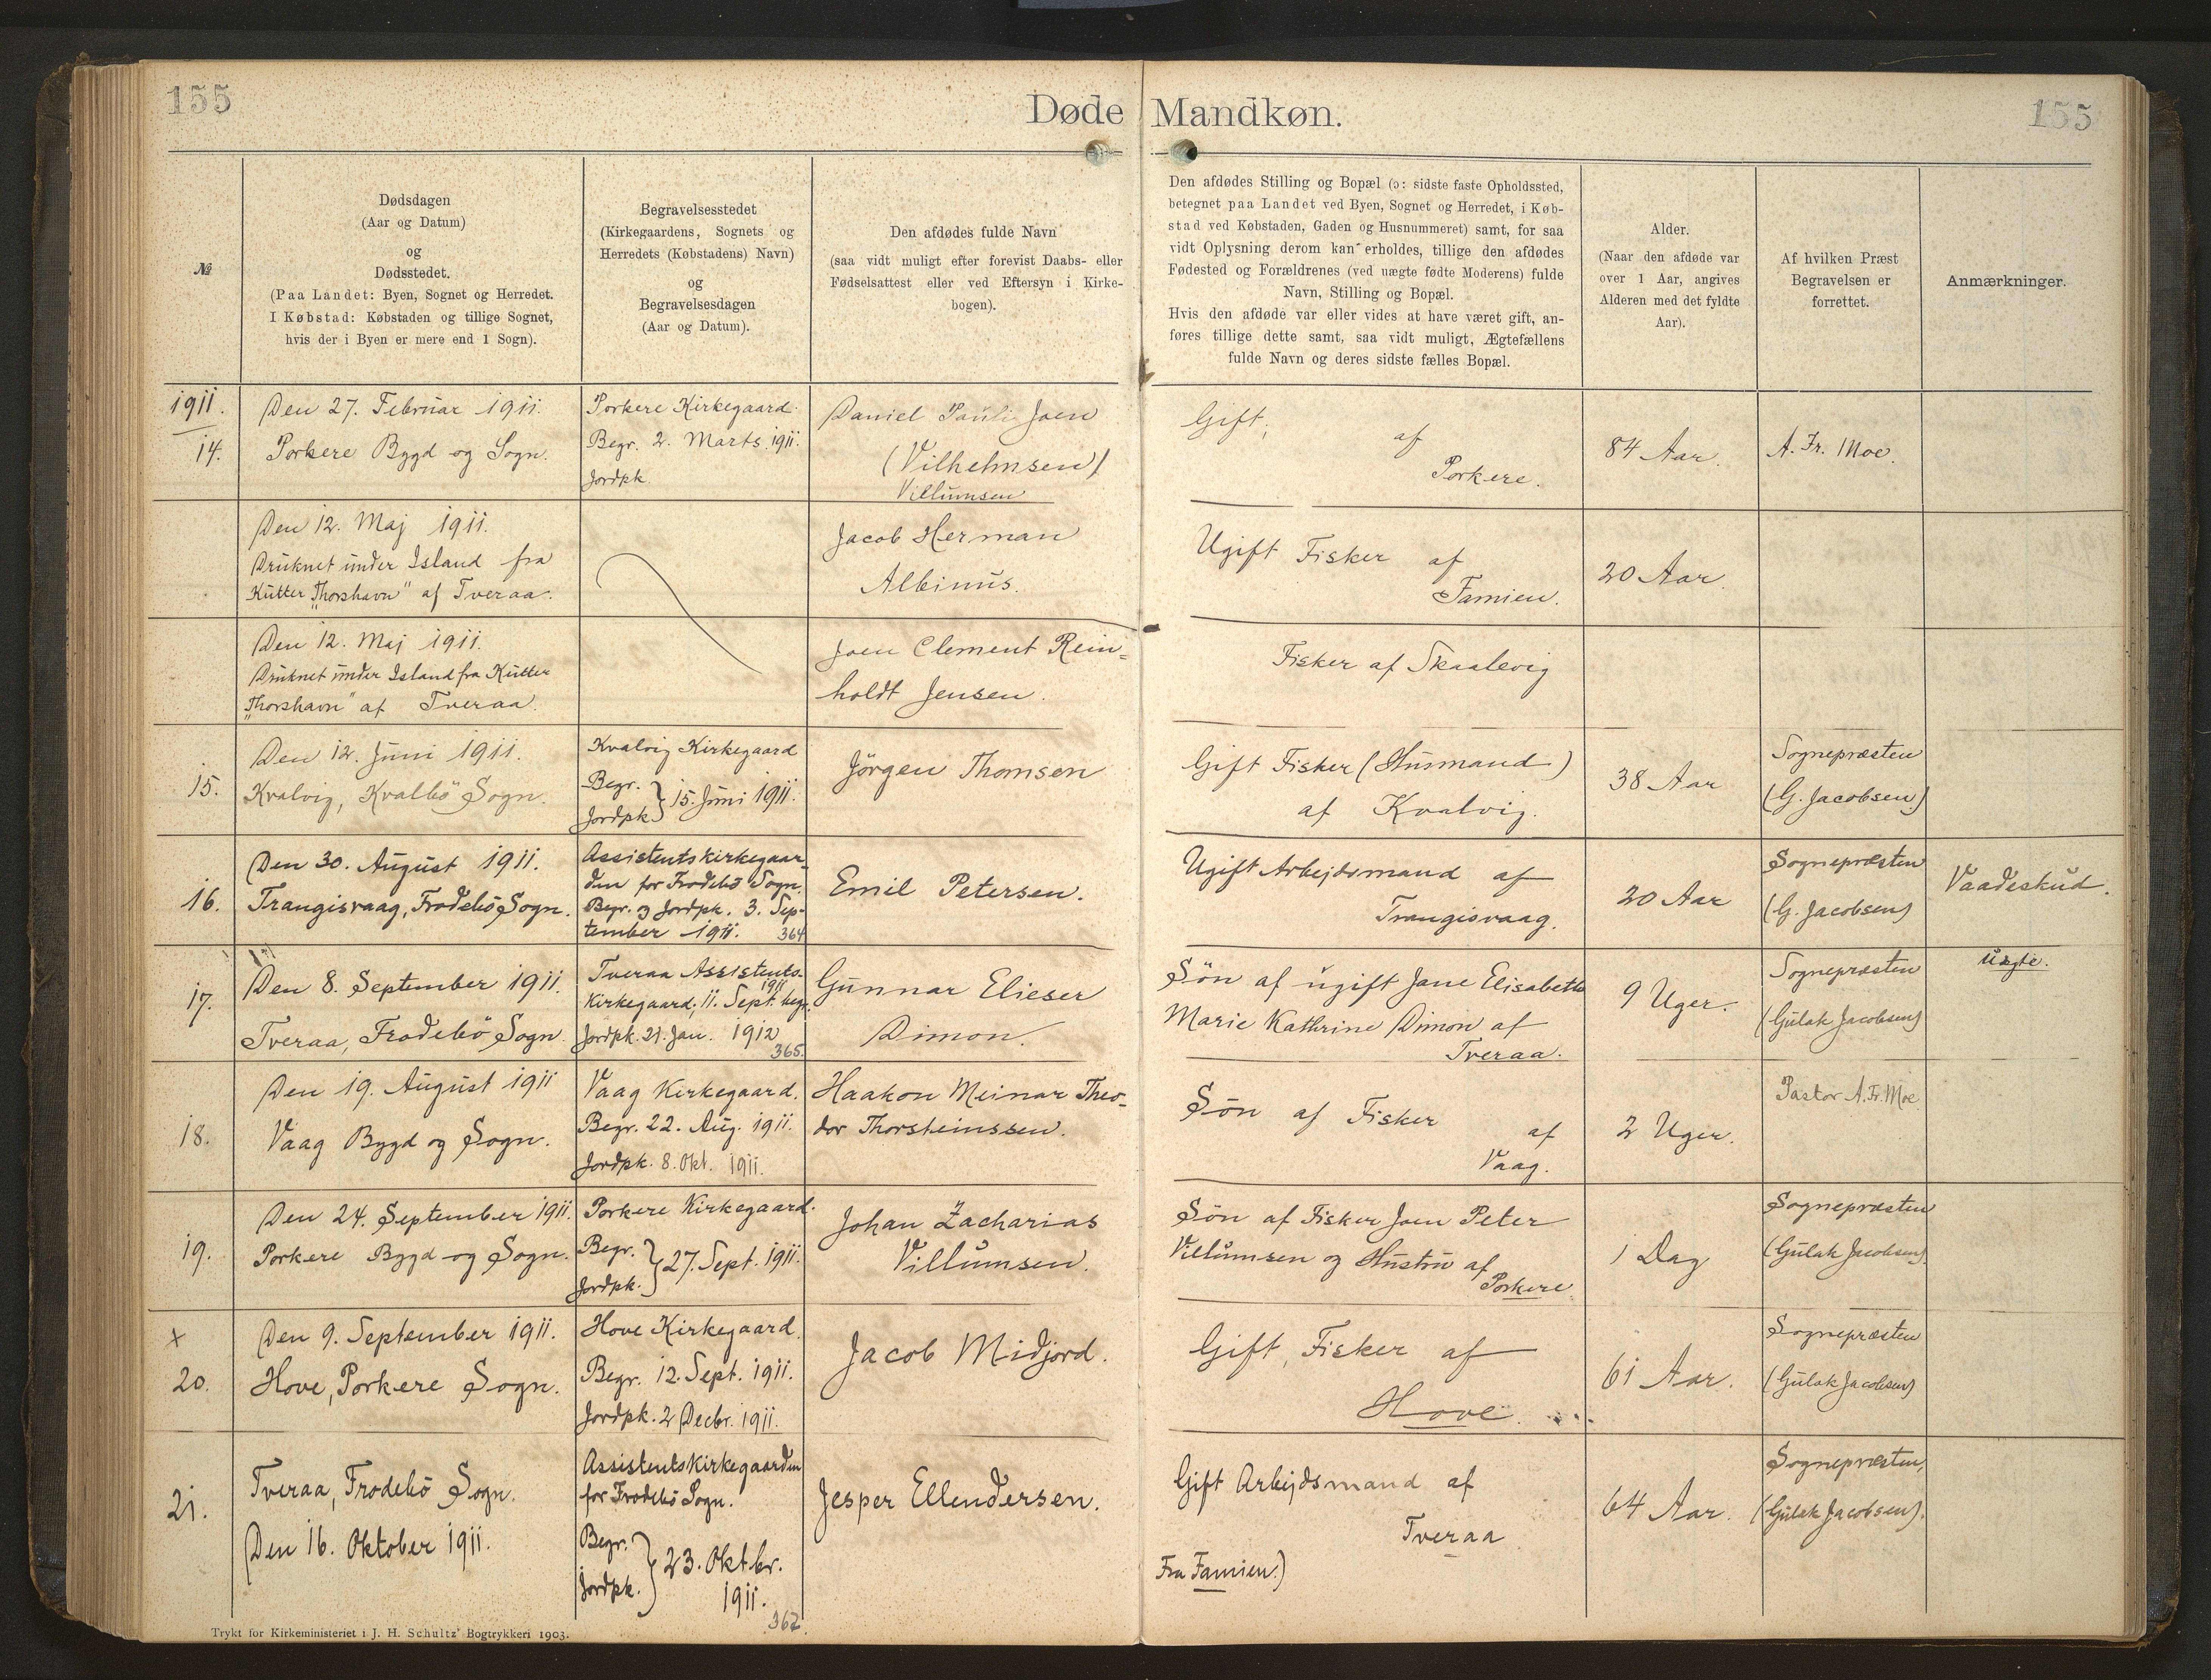 155
Døde Mandkøn.
155
№
Dødsdagen
(Aar og Datum)
og
Dødsstedet.
(Paa Landet: Byen, Sognet og Herredet.
I Købstad: Købstaden og tillige Sognet,
hvis der i Byen er mere end 1 Sogn).
Begravelsesstedet
(Kirkegaardens, Sognets og
Herredets (Købstadens) Navn)
og
Begravelsesdagen
(Aar og Datum).
Den afdødes fulde Navn
(saa vidt muligt efter forevist Daabs- eller
Fødselsattest eller ved Eftersyn i Kirke-
bogen).
Den afdødes Stilling og Bopæl (ɔ: sidste faste Opholdssted,
betegnet paa Landet ved Byen, Sognet og Herredet, i Køb-
stad ved Købstaden, Gaden og Husnummeret) samt, for saa
vidt Oplysning derom kan erholdes, tillige den afdødes
Fødested og Forældrenes (ved uægte fødte Moderens) fulde
Navn, Stilling og Bopæl.
Hvis den afdøde var eller vides at have været gift, an-
føres tillige dette samt, saa vidt muligt, Ægtefællens
fulde Navn og deres sidste fælles Bopæl.
Alder.
(Naar den afdøde var
over 1 Aar, angives
Alderen med det fyldte
Aar).
Af hvilken Præst
Begravelsen er
forrettet.
Anmærkninger.
1911.
14.
Den 27. Februar 1911.
Porkere Bygd og Sogn.
Porkere Kirkegaard.
Begr. 2. Marts. 1911.
Jordpk.
Daniel Pauli Joen
(Vilhelmsen)
Villumsen
Gift,
af
Porkere.
84 Aar.
A. Fr. Moe.
Den 12. Maj 1911.
Druknet under Island fra
Kutter "Thorshavn" af Tveraa.
Jacob Herman
Albinus.
Ugift Fisker af
Famien.
20 Aar
Den 12. Maj 1911.
Druknet under Island fra Kutter
"Thorshavn" af Tveraa.
Joen Clement Rein=
holdt Jensen.
Fisker af Skaalevig
15.
Den 12. Juni 1911.
Kvalvig, Kvalbö Sogn.
Kvalvig Kirkegaard
Begr.
Jordpk. } 15. Juni 1911.
Jörgen Thomsen
Gift Fisker (Husmand)
af Kvalvig.
38 Aar
Sognepræsten
(G. Jacobsen)
16.
Den 30. August 1911.
Trangisvaag, Frodebö Sogn.
Assistentskirkegaar-
den for Frodebö Sogn.
Begr. og Jordpk. 3. Sep-
tember 1911. 364
Emil Petersen.
Ugift Arbejdsmand af
Trangisvaag.
20 Aar
Sognepræsten
(G. Jacobsen)
Vaadeskud.
17.
Den 8. September 1911.
Tveraa, Frodebö Sogn.
Tveraa Assistents-
Kirkegaard, 11. Sept. 1911 begr.
Jordpk. 21. Jan. 1912
365.
Gunnar Elieser
Dimon.
Sön af ugift Jane Elisabeth
Marie Kathrine Dimon af
Tveraa.
9 Uger.
Sognepræsten
(Gulak Jacobsen)
Uægte.
18.
Den 19. August 1911
Vaag Bygd og Sogn.
Vaag Kirkegaard.
Begr. 22. Aug. 1911.
Jordpk. 8. Okt. 1911.
Haakon Meinar Theo-
dor Thorsteinssen.
Sön af Fisker
af
Vaag.
2 Uger.
Pastor A. Fr. Moe
19.
Den 24. September 1911.
Porkere Bygd og Sogn.
Porkere Kirkegaard.
Begr.
Jordpk. } 27. Sept. 1911.
Johan Zacharias
Villumsen.
Sön af Fisker Joen Peter
Villumsen og Hustru af
Porkere.
1 Dag
Sognepræsten
(Gulak Jacobsen)
x
20.
Den 9. September 1911.
Hove, Porkere Sogn.
Hove Kirkegaard.
Begr. 12. Sept. 1911.
Jordpk. 2 Decbr. 1911.
Jacob Midjord.
Gift, Fisker af
Hove.
61 Aar.
Sognepræsten
(Gulak Jacobsen)
21.
Tveraa, Frodebö Sogn.
Den 16. Oktober 1911.
Assistentskirkegaarden
for Frodebö Sogn.
Begr.
Jordpk. } 23. Oktbr.
1911.
367.
Jesper Ellendersen.
Gift Arbejdsmand af
Tveraa
Fra Famien.)
64 Aar.
Sognepræsten,
(Gulak Jacobsen).
Trykt for Kirkeministeriet i J. H. Schultz' Bogtrykkeri 1903.